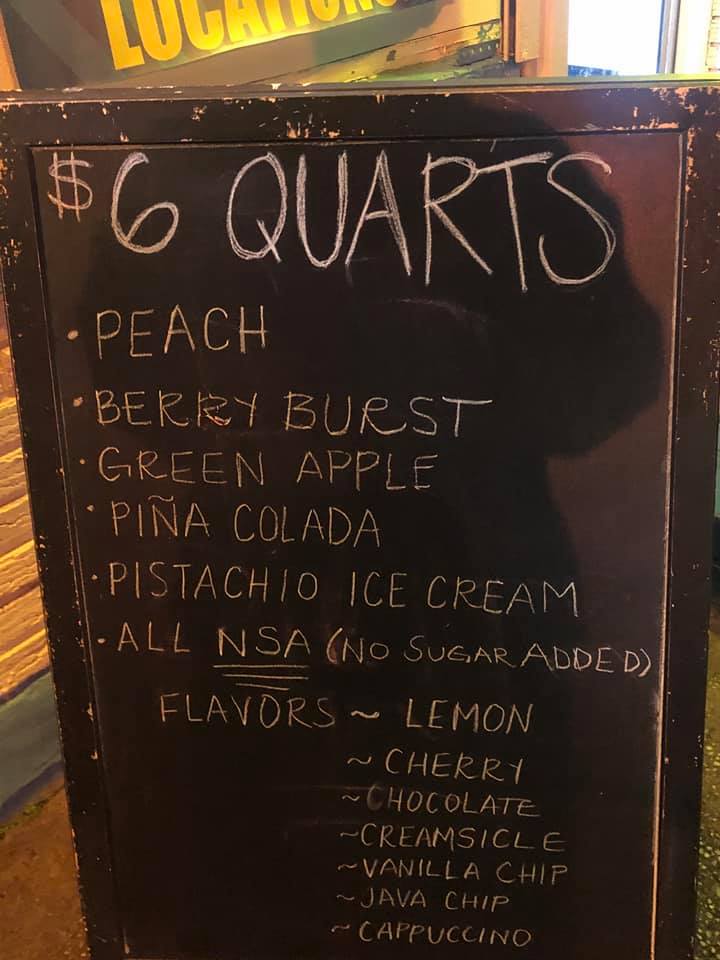 LOCATIONS
$6 QUARTS
• PEACH
• BERRY BURST
• GREEN APPLE
• PIÑA COLADA
• PISTACHIO ICE CREAM
• ALL NSA (NO SUGAR ADDED)
FLAVORS ~ LEMON
~ CHERRY
~ CHOCOLATE
~ CREAMSICLE
~ VANILLA CHIP
~ JAVA CHIP
~ CAPPUCCINO